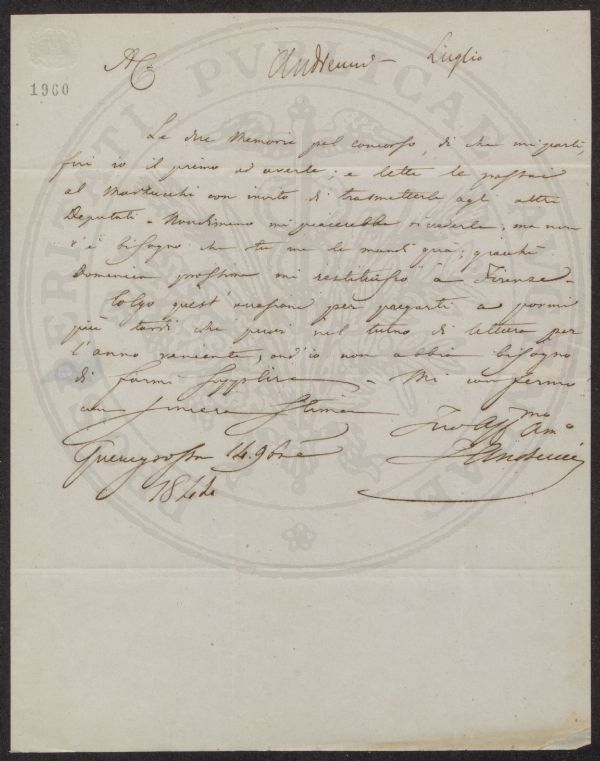 AC. Andreucci Luglio
1960
Le due Memorie pel concorso, di che mi parli,
fui io il primo ad averle; e lette le passai
al Martucchi con invito di trasmetterle agli altri
Deputati - Nondimeno mi piacerebbe rivederle; ma non
v'è bisogno che tu me le mandi qua; giacchè
Domenica prossima mi restituisco a Firenze -
Colgo quest'occasione per pregarti a pormi
più tardi che puoi nel turno di lettura per
l'anno veniente, ond'io non abbia bisogno
di farmi supplire - Mi confermo
con sincera stima
Tuo Aff.mo Am.o
F Andreucci
14 9bre
184